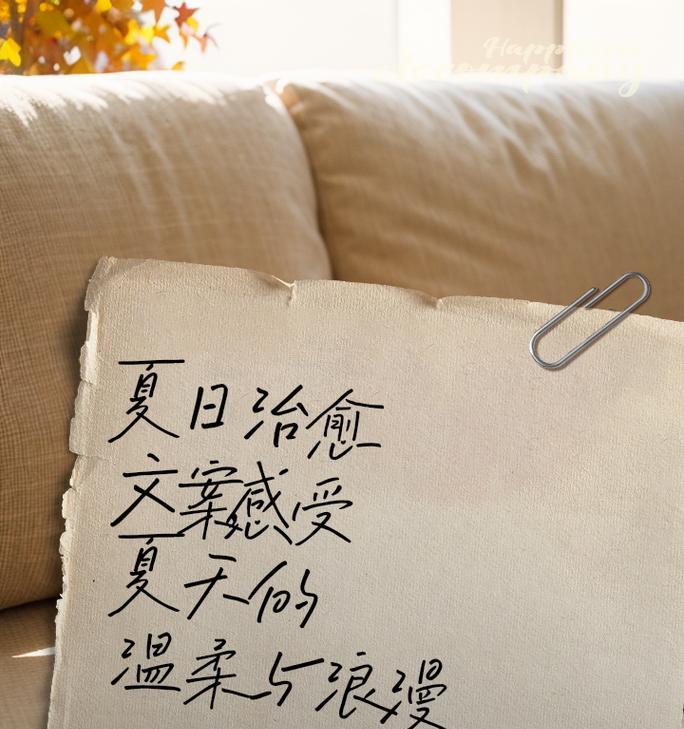 夏日治愈
文案感受
夏天的
温柔与浪漫